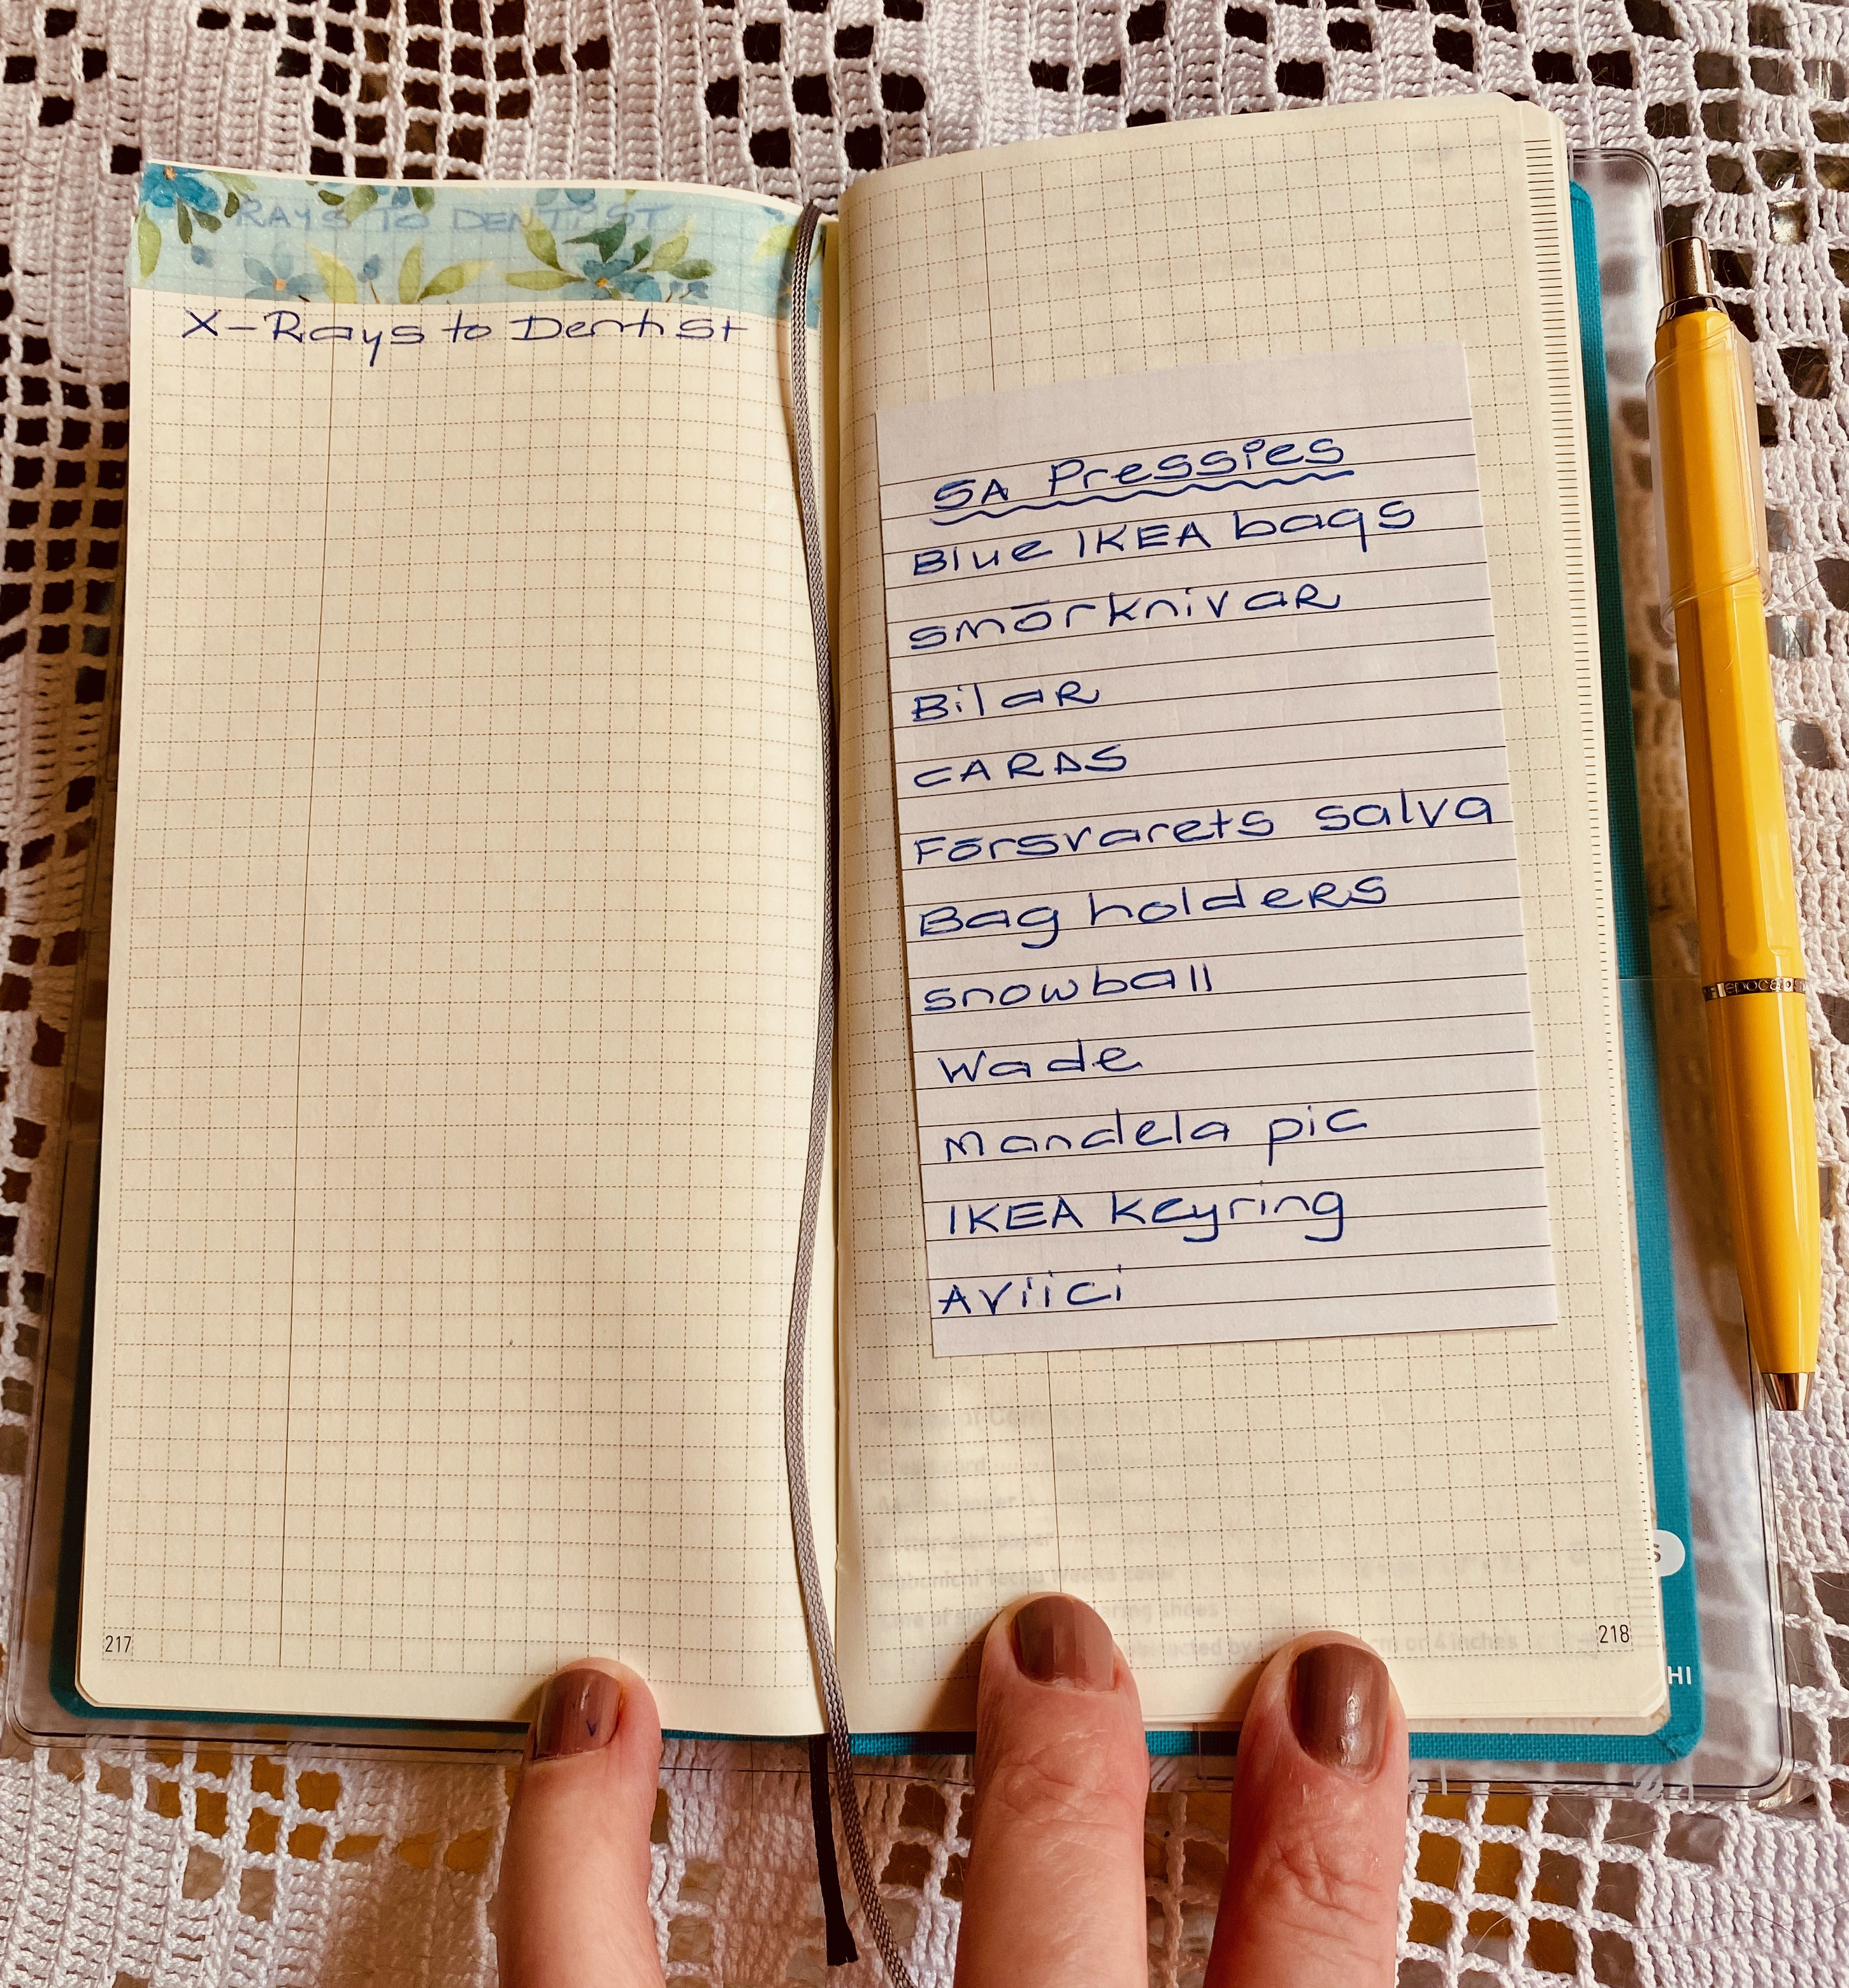 RAYS TO DENTIST
X-Rays to Dentist
217
SA Pressies
Blue IKEA bags
smörknivar
Bilar
CARDS
Försvarets salva
Bag holders
snowball
Wade
Mandela pic
IKEA keyring
Aviici
paper
paper
shoes
cm or 4 inches
218
S
HI